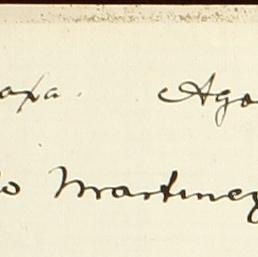 apa. Ago
o Martinez